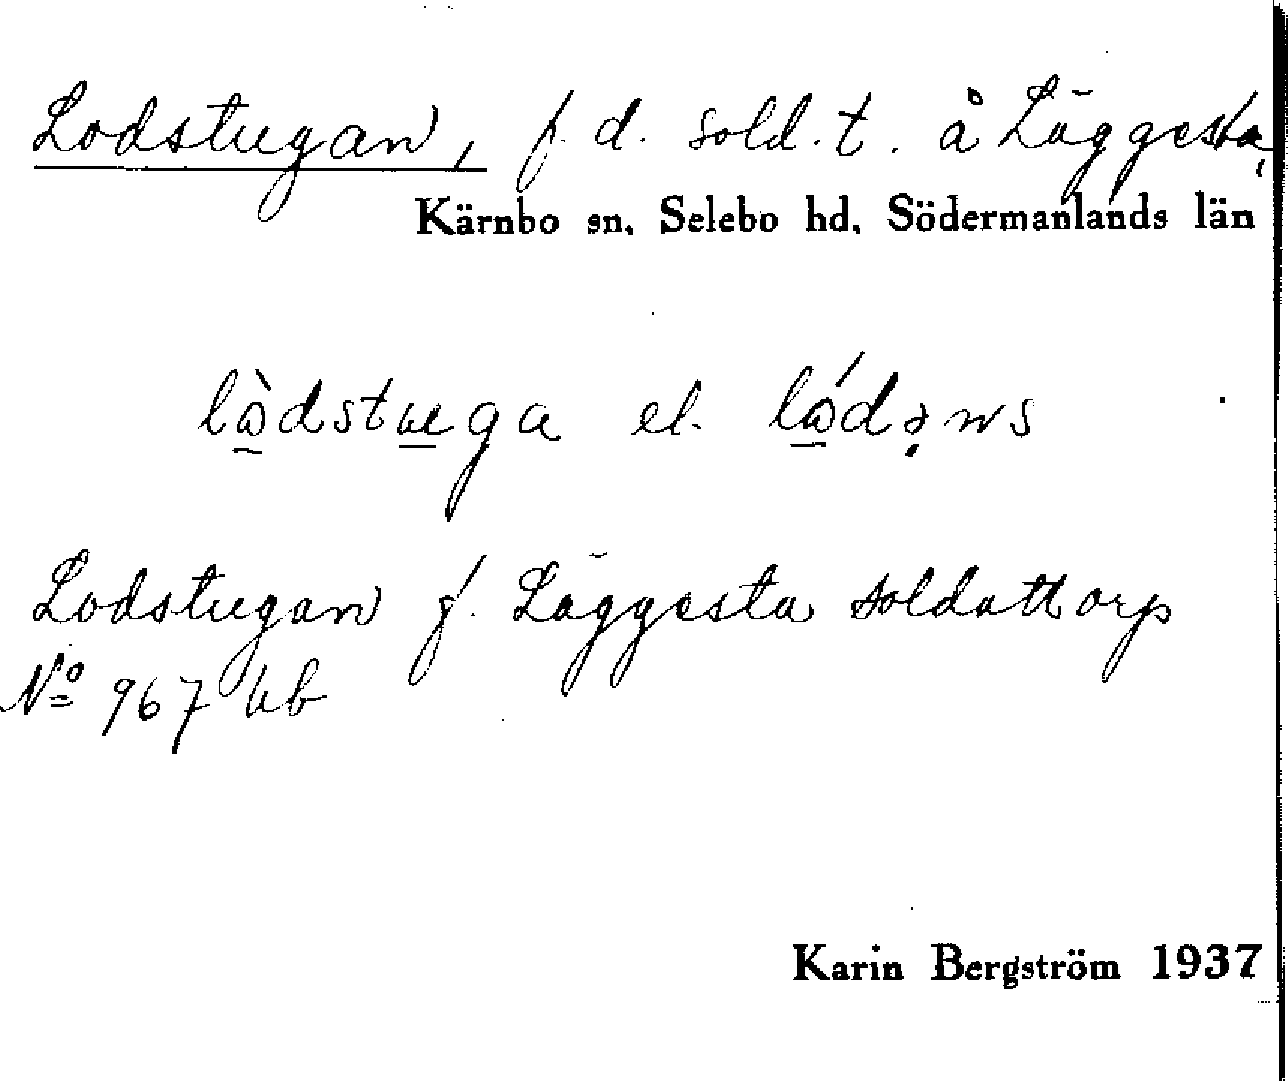 Lodstugan, f. d. sold. t. å Läggesta,
Kärnbo sn, Selebo hd, Södermanlands län
lòdstuga el. lódəns
Lodstugan f. Läggesta soldattorp
No 967 kb
Karin Bergström 1937